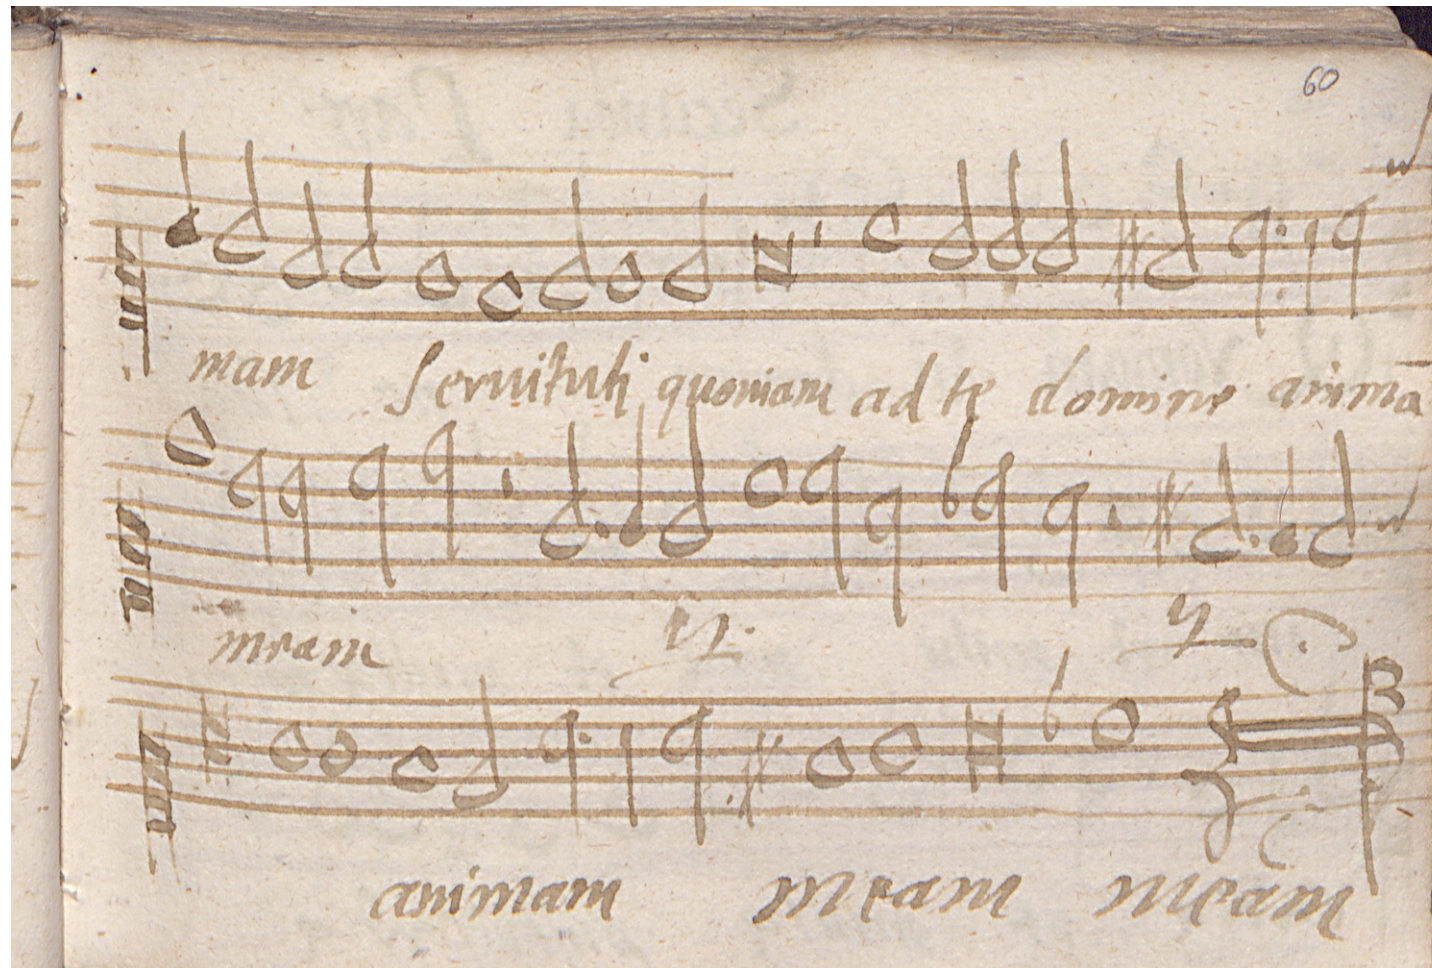 60
mam Seruituti quoniam ad te domine animā
meam ij. ij
animam meam meam